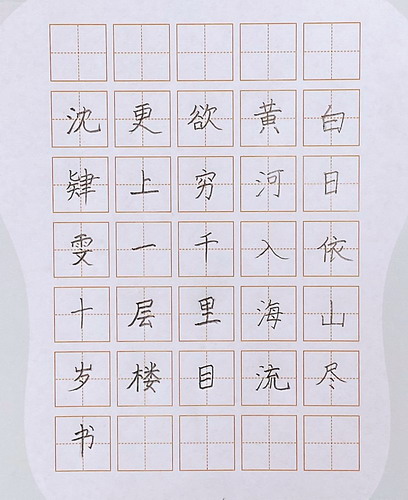 白日依山尽
黄河入海流
欲穷千里目
更上一层楼
沈肄雯十岁书